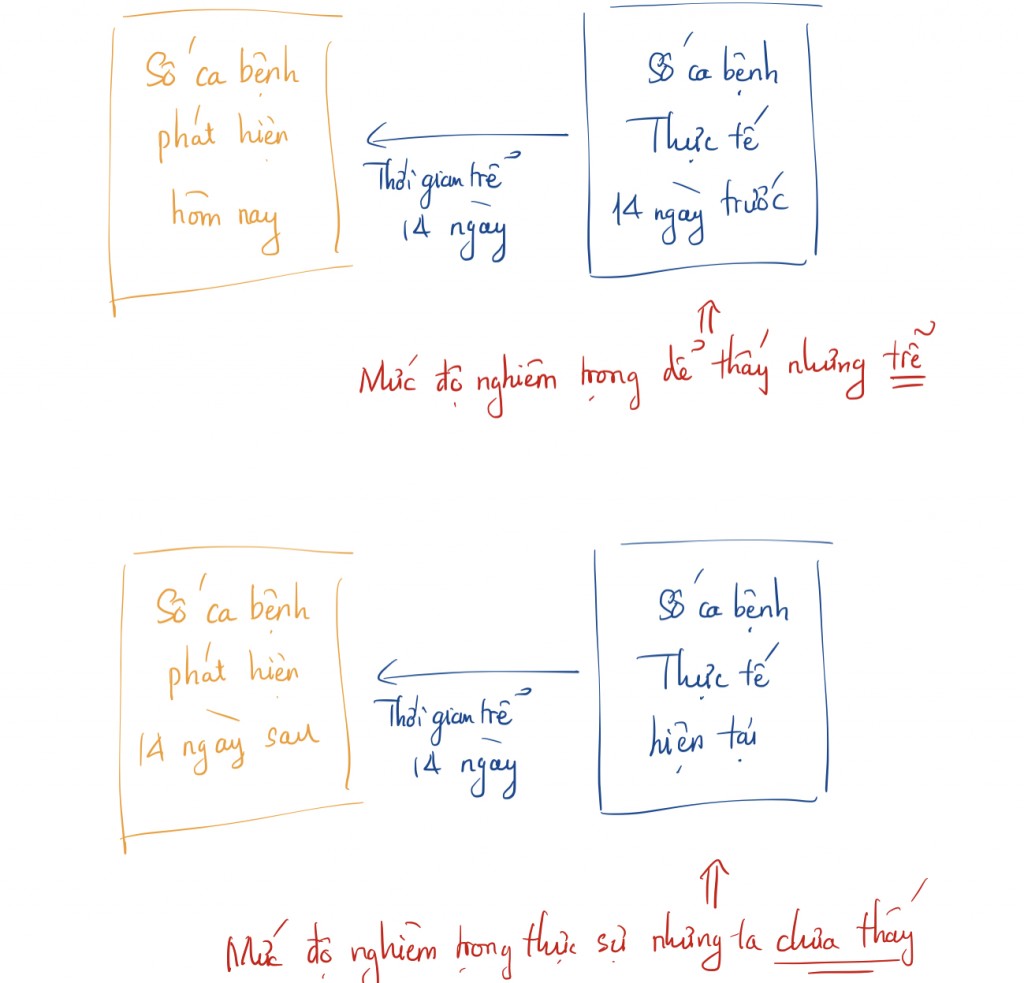 Số ca bệnh
phát hiện
hôm nay
Thời gian trể
14 ngày
Số ca bệnh
Thực tế
14 ngày trước
Mức độ nghiêm trọng dể thấy nhưng trễ
Số ca bệnh
phát hiện
14 ngày sau
Thời gian trể
14 ngày
Số ca bệnh
Thực tế
hiện tại
Mức độ nghiêm trọng thực sự nhưng ta chưa thấy